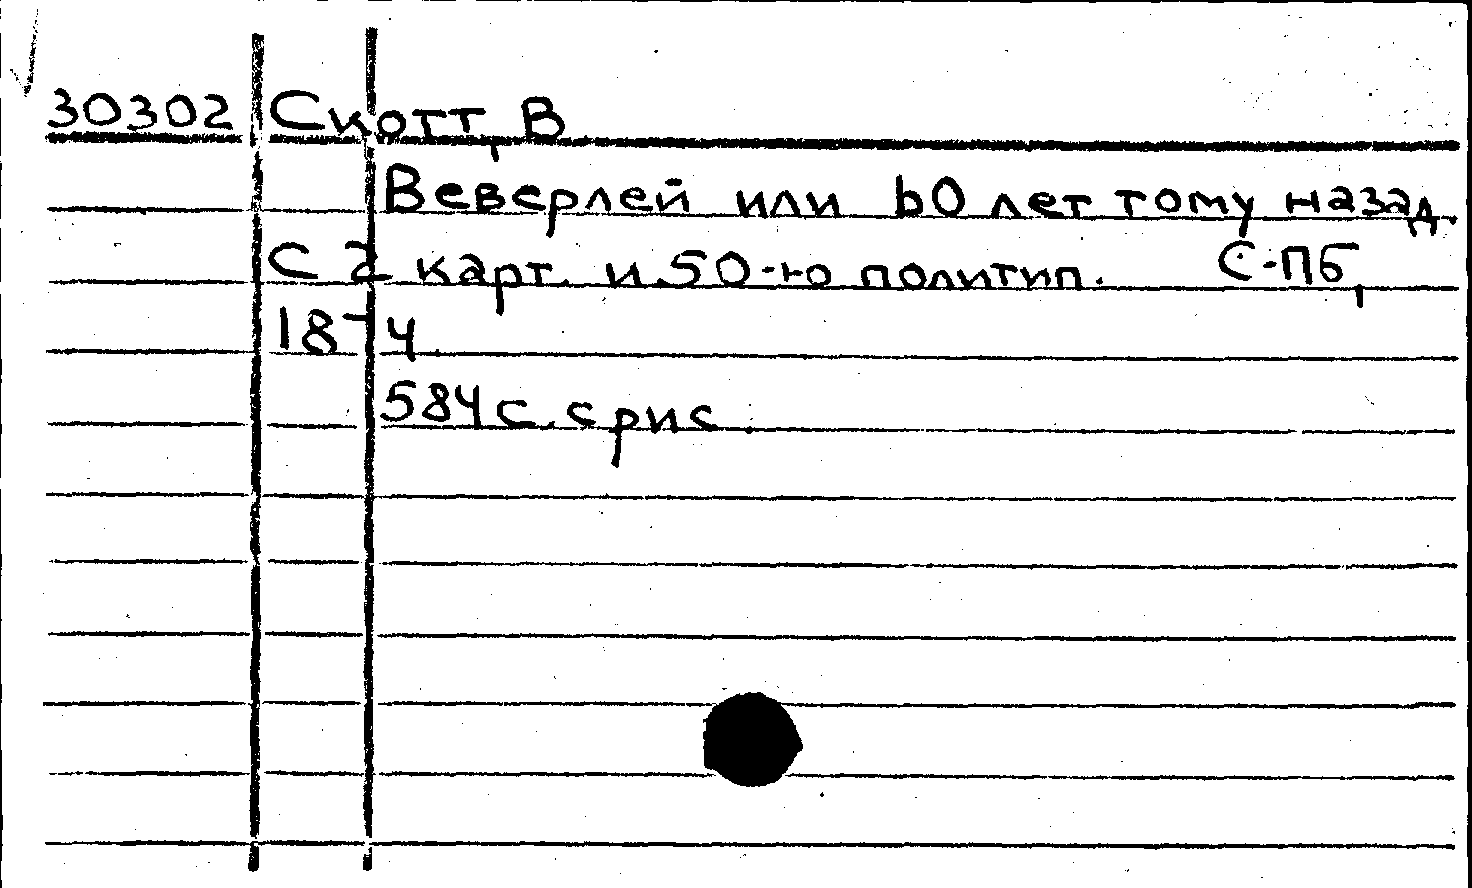 30302 Скотт, В
Веверлей или 60 лет тому назад.
С 2 карт. и 50-ю политип. С-Пб,
1874.
584 с. с рис.